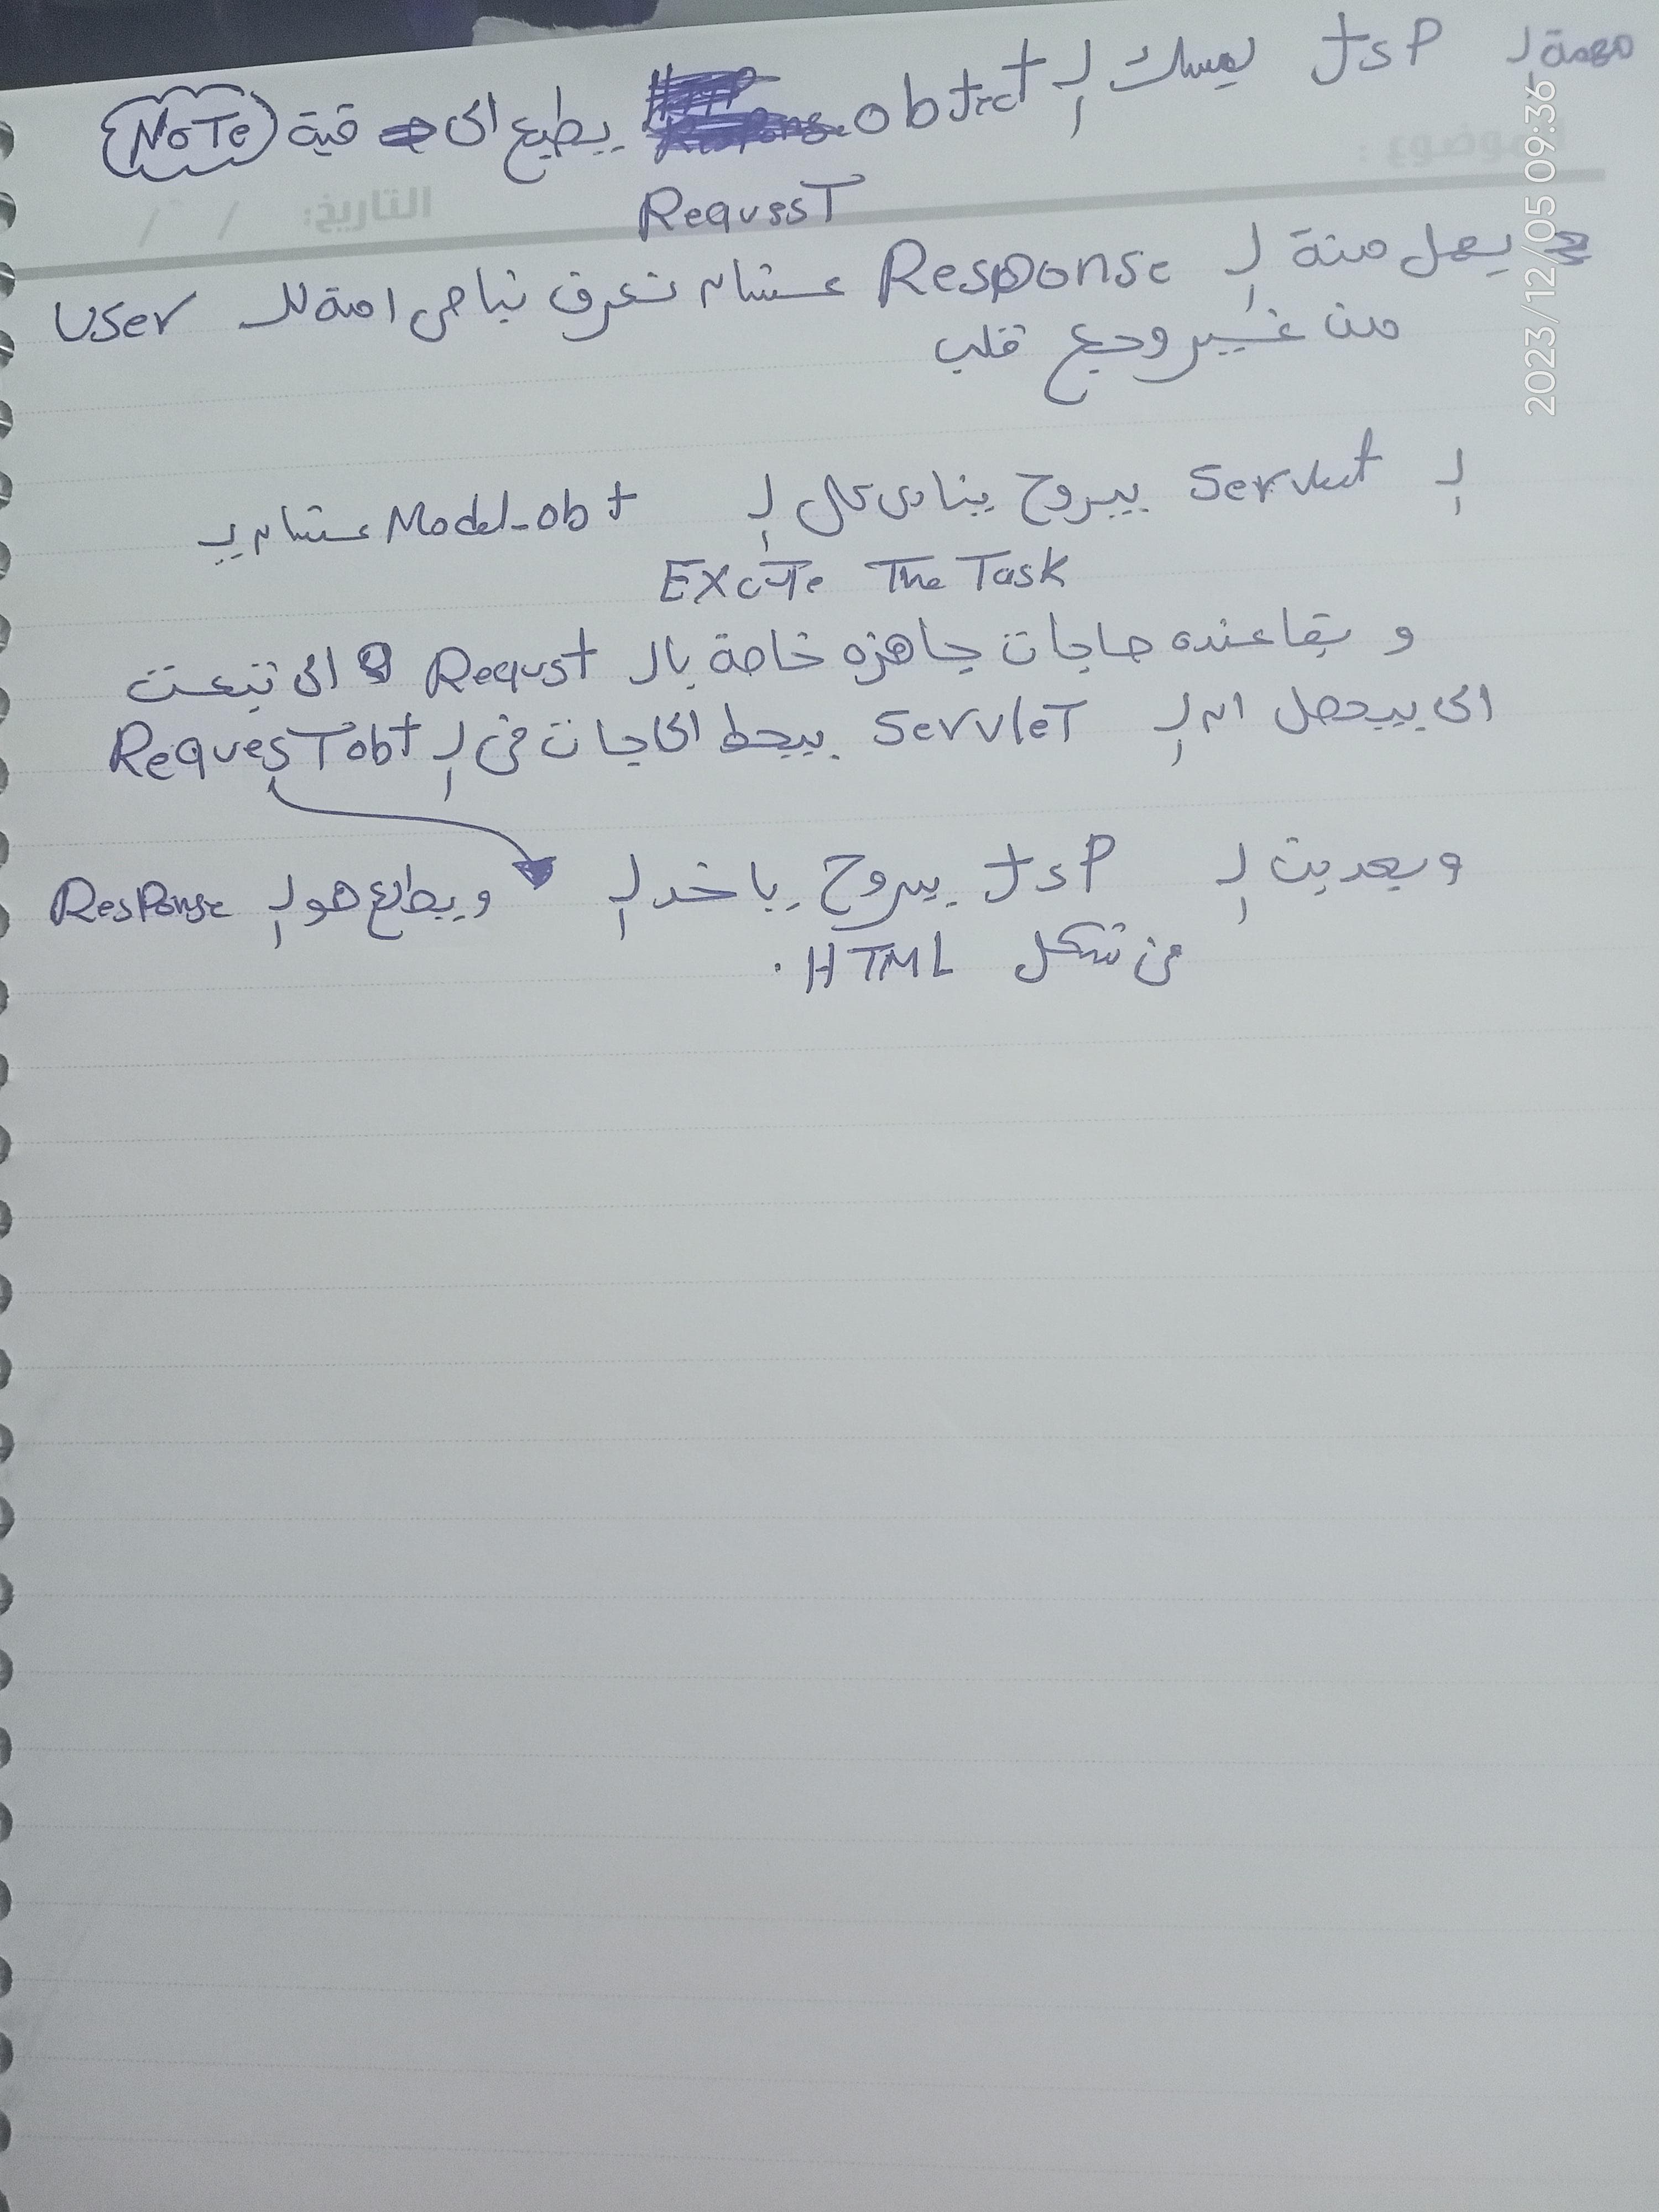 مهمة ال JSP يمسك ال object يطبع الى فية NOTe
RequesT
يعمل منة ال Response عشان تعرف تباصى امة لل User
من غير وجع قلب
ال Servlet بيروح ينادى كل ال Model-obt عشان يـ
EXcuTe The Task
و بقا عنده حاجات جاهزه خاصة بال Requst الى تبعت
الى بيحصل ان ال ServleT بيحط الحاجات فى ال RequesT obt
وبعدين ال JSP بيروح ياخد ال ويطلع هو ال Response
فى شكل HTML .
الموضوع :
التاريخ: / /
2023/12/05 09:36